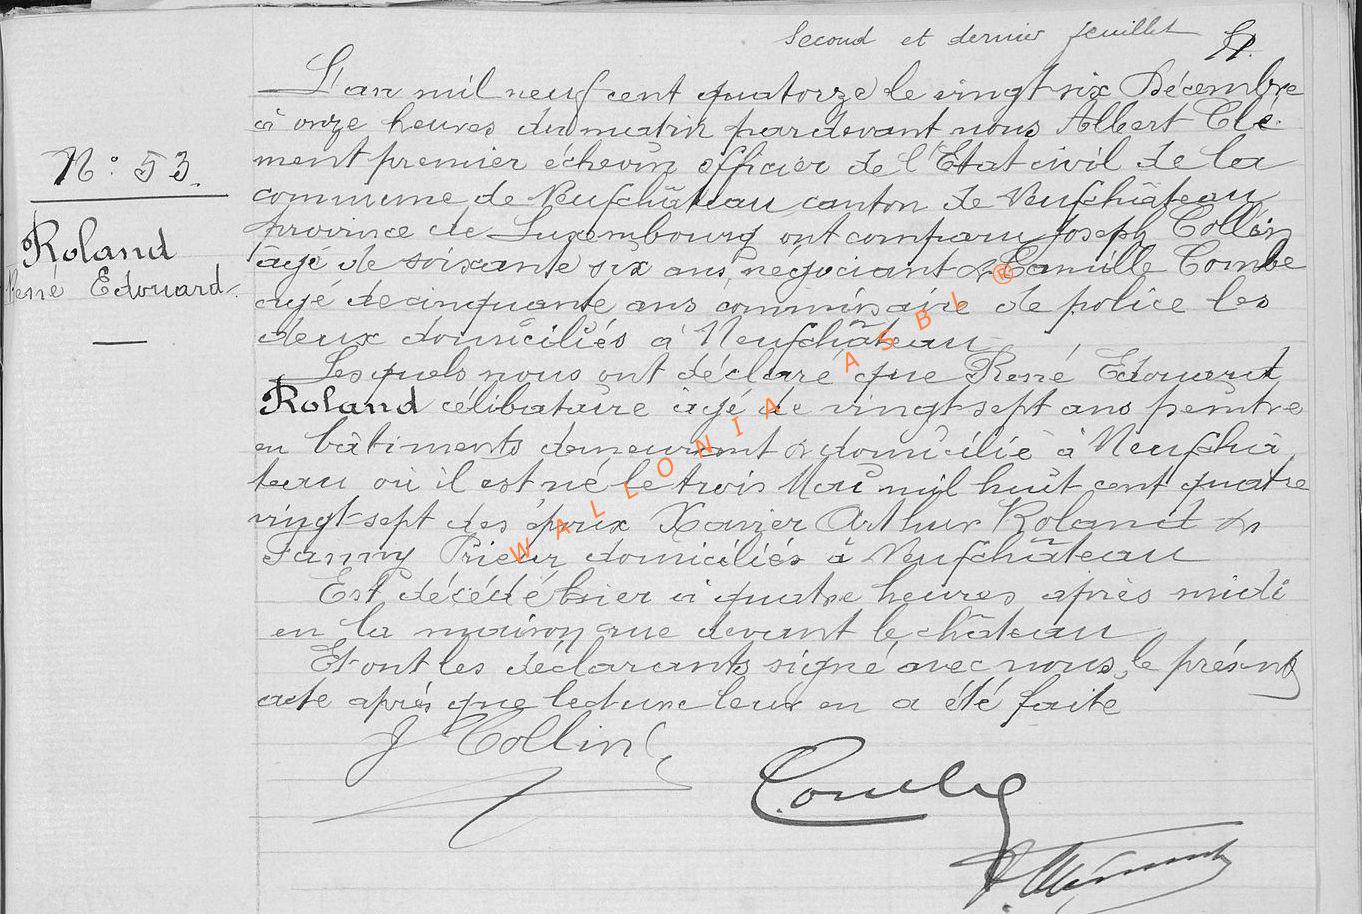 Second et dernier feuillet
L'an mil neuf cent quatorze le vingt six Décembre
à onze heures du matin pardevant nous Albert Clé-
ment premier échevin officier de l'Etat civil de la
commune de Neufchâteau canton de Neufchâteau
province de Luxembourg ont comparu Joseph Collin
âgé de soixante six ans négociant & Camille Combe
âgé de cinquante ans commissaire de police les
deux domiciliés à Neufchâteau
Lesquels nous ont déclaré que René Edouard
Roland célibataire âgé de vingt-sept ans peintre
en bâtiments demeurant & domicilié à Neufchâ
teau où il est né le trois Mai mil huit cent quatre
vingt-sept des époux Xavier Arthur Roland &
Fanny Prieur domiciliés à Neufchâteau
Est décédé hier à quatre heures après midi
en la maison rue devant le château
Et ont les déclarants signé avec nous le présent
acte après que lecture leur en a été faite
J Collin
Combe
A. Clément
N° 53.
Roland
René Edouard.
WALLONIA ASBL ®